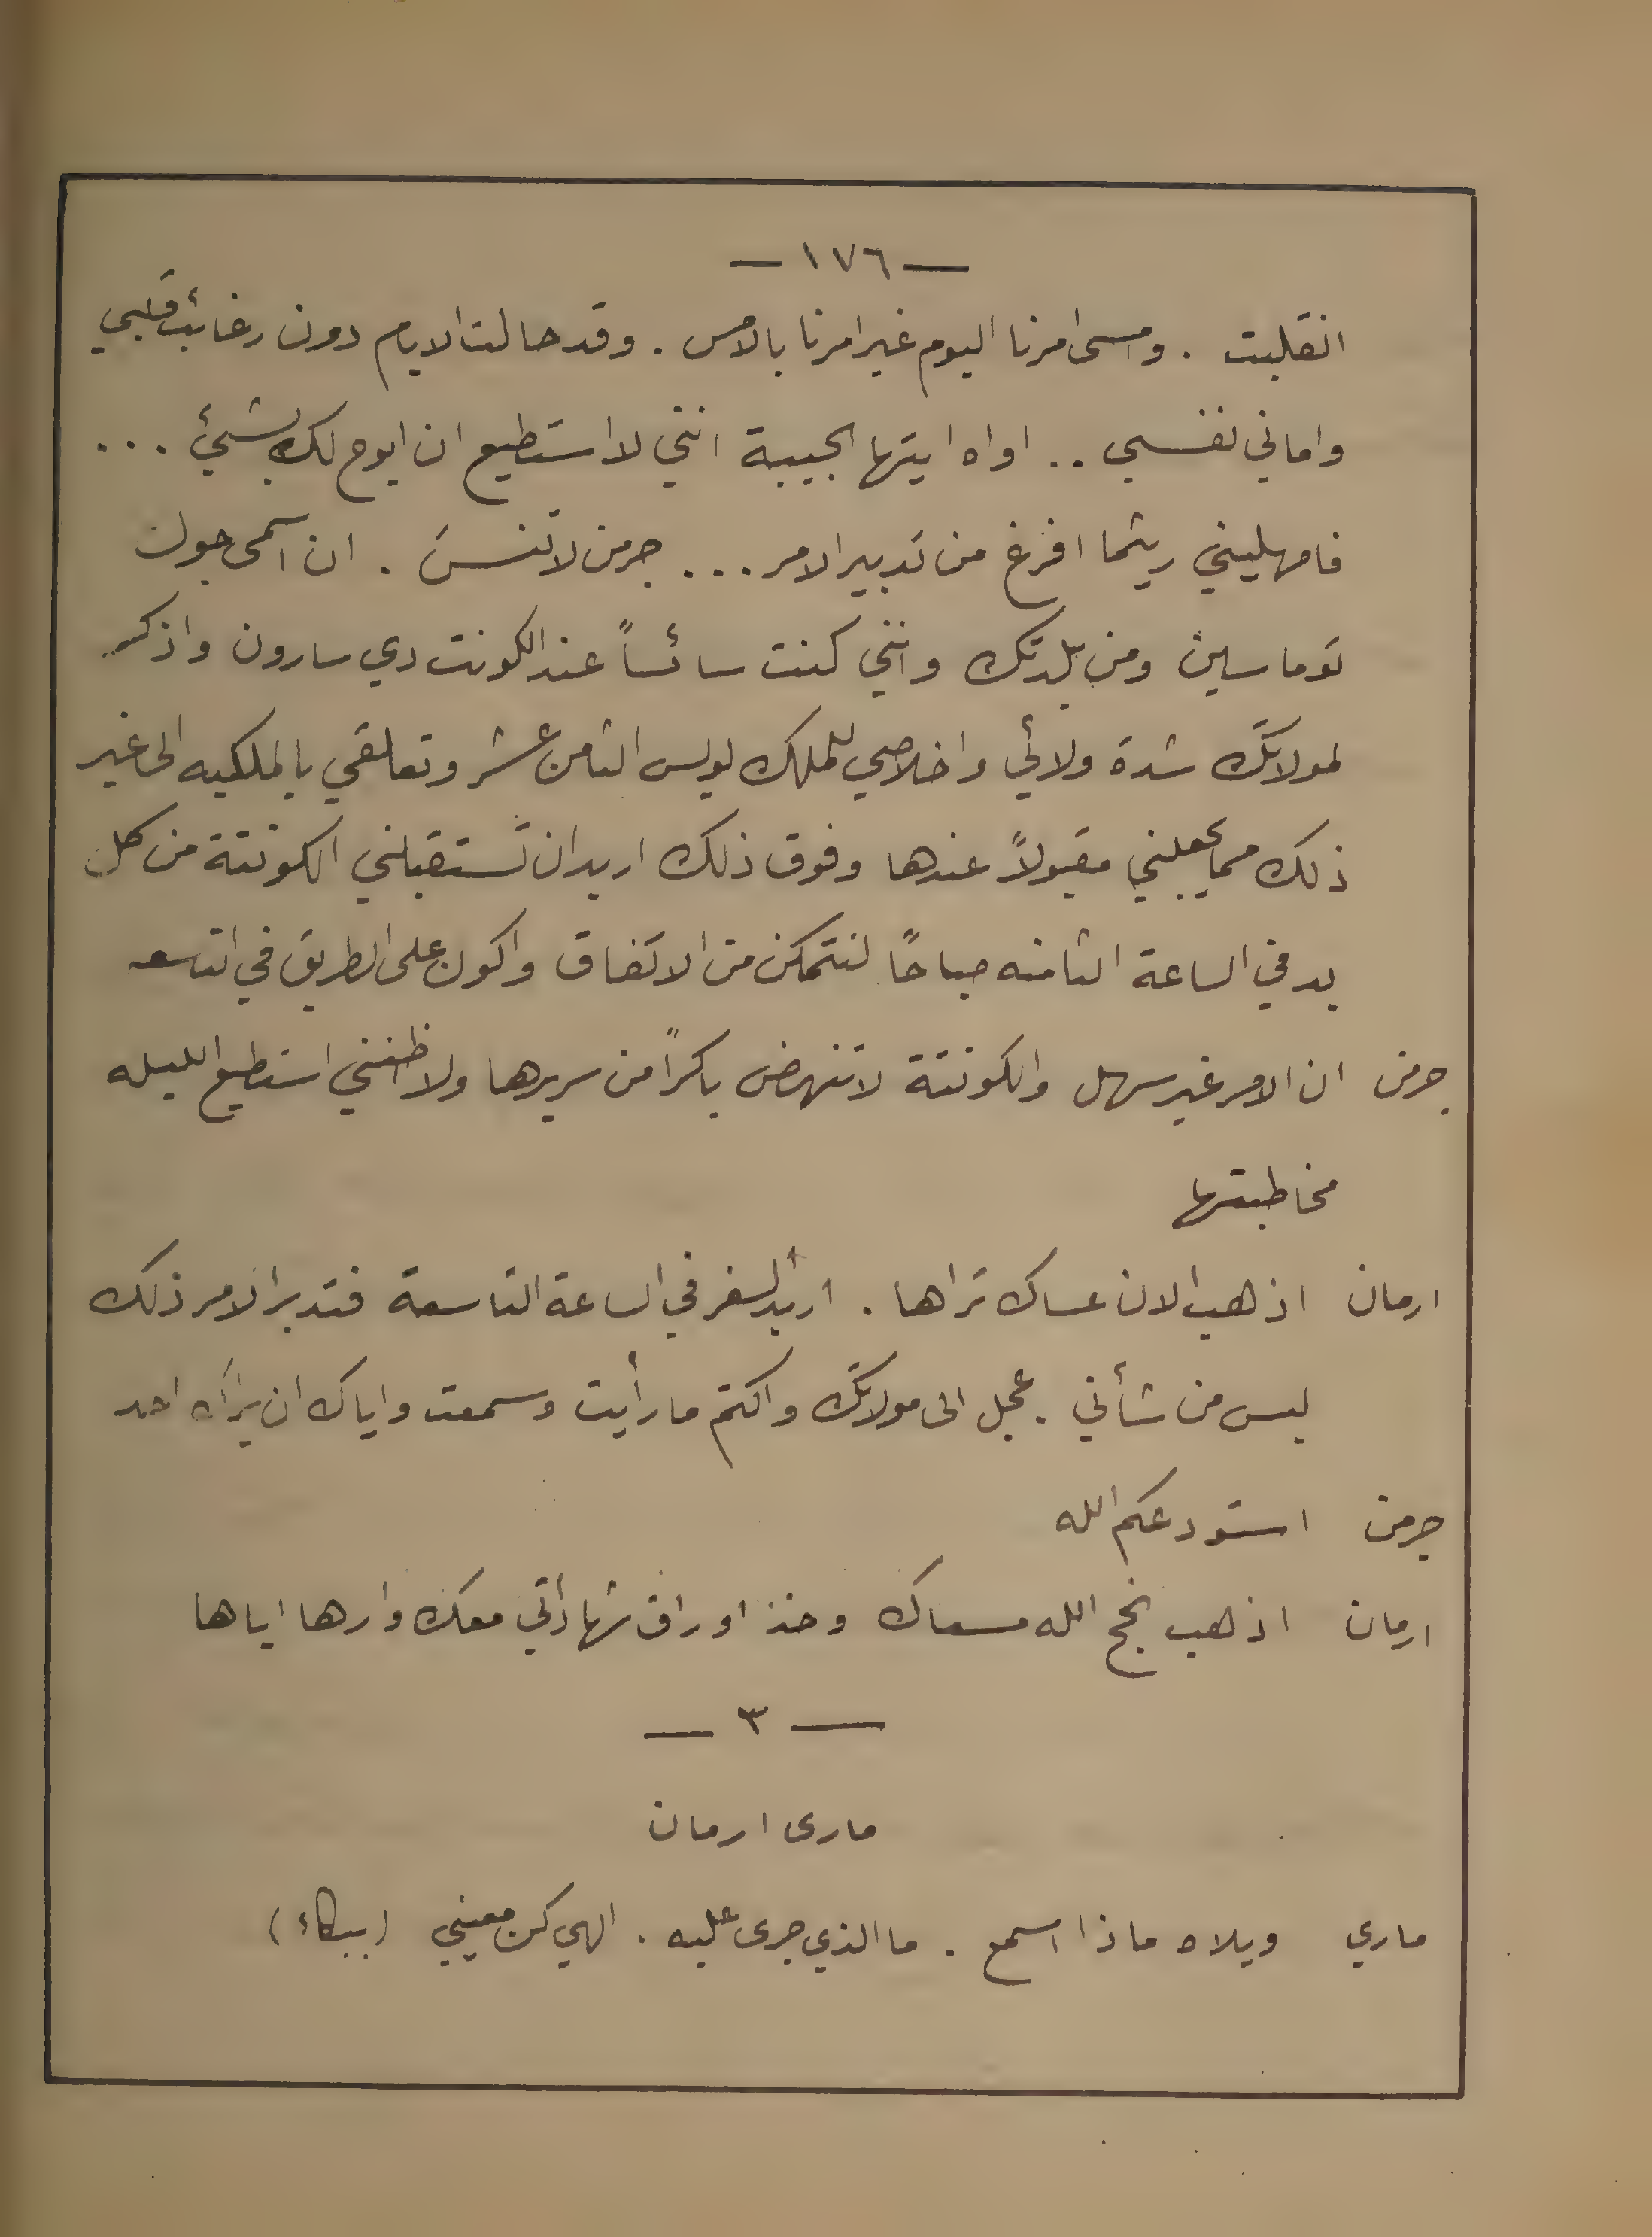 — ١٧٦ —
انقلبت . وامسى امرنا اليوم غير امرنا بالامس . وقد حالت الايام دون رغائب قلبي
واماني نفسي .. اواه ايتها الحبيبة انني لا استطيع ان ابوح لك بشيئ ...
فامهليني ريثما افرغ من تدبير الامر ... جرمن لا تنسَ . ان اسمى جول
توماسين ومن بلدتك وانني كنت سائساً عند الكونت دي سارون واذكر
لمولاتك شدة ولائي واخلاصي للملك لويس الثامن عشر وتعلقي بالملكيه الى غير
ذلك مما يجعلني مقبولاً عندها وفوق ذلك اريد ان تستقبلني الكونتة من كل
بد في الساعة الثامنه صباحاً لنتمكن من الاتفاق واكون على الطريق في التاسعه
جرمن ان الامر غير سهل والكونتة لا تنهض باكراً من سريرها ولا اظنني استطيع الليله
مخاطبتها
ارمان اذهب الان عساك تراها . اريد السفر في الساعة التاسعة فتدبر الامر ذلك
ليس من شأني . عجل الى مولاتك واكتم ما رأيت وسمعت واياك ان يراك احد
جرمن استودعكم الله
ارمان اذهب نجح الله مسعاك وخذ اوراق شهاداتي معك وارها اياها
— ٣ —
مارى ارمان
ماري ويلاه ماذا اسمع . ما الذي جرى عليه . الهي كن معيني (ببكاء)